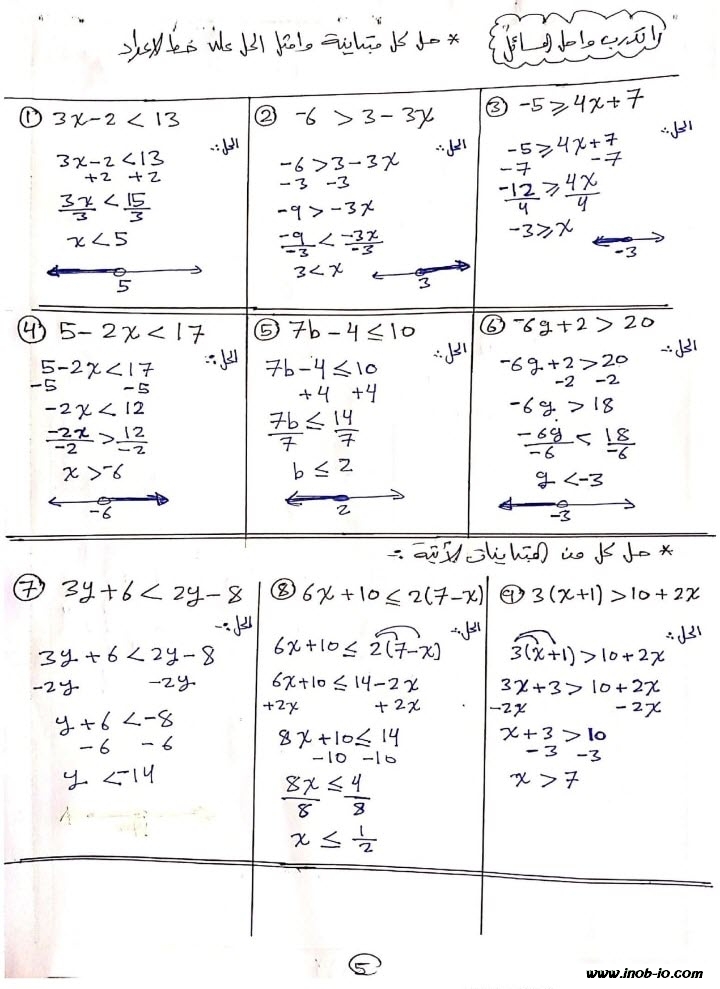 أتدرب وأحل المسائل
* حل كل متباينة وامثل الحل على خط الأعداد
① 3x-2 < 13
الحل:-
3x-2 < 13
+2 +2
3x/3 < 15/3
x < 5
5
② -6 > 3-3x
الحل:-
-6 > 3-3x
-3 -3
-9 > -3x
-9/-3 < -3x/-3
3 < x
3
③ -5 ≥ 4x+7
الحل:-
-5 ≥ 4x+7
-7 -7
-12/4 ≥ 4x/4
-3 ≥ x
-3
④ 5-2x < 17
الحل:-
5-2x < 17
-5 -5
-2x < 12
-2x/-2 > 12/-2
x > -6
-6
⑤ 7b-4 ≤ 10
الحل:-
7b-4 ≤ 10
+4 +4
7b/7 ≤ 14/7
b ≤ 2
2
⑥ -6g+2 > 20
الحل:-
-6g+2 > 20
-2 -2
-6g > 18
-6g/-6 < 18/-6
g < -3
-3
* حل كل من المتباينات الآتية :-
⑦ 3y+6 < 2y-8
الحل:-
3y+6 < 2y-8
-2y -2y
y+6 < -8
-6 -6
y < -14
⑧ 6x+10 ≤ 2(7-x)
الحل:-
6x+10 ≤ 2(7-x)
6x+10 ≤ 14-2x
+2x +2x
8x+10 ≤ 14
-10 -10
8x/8 ≤ 4/8
x ≤ 1/2
⑨ 3(x+1) > 10+2x
الحل:-
3(x+1) > 10+2x
3x+3 > 10+2x
-2x -2x
x+3 > 10
-3 -3
x > 7
⑤
www.inob-io.com